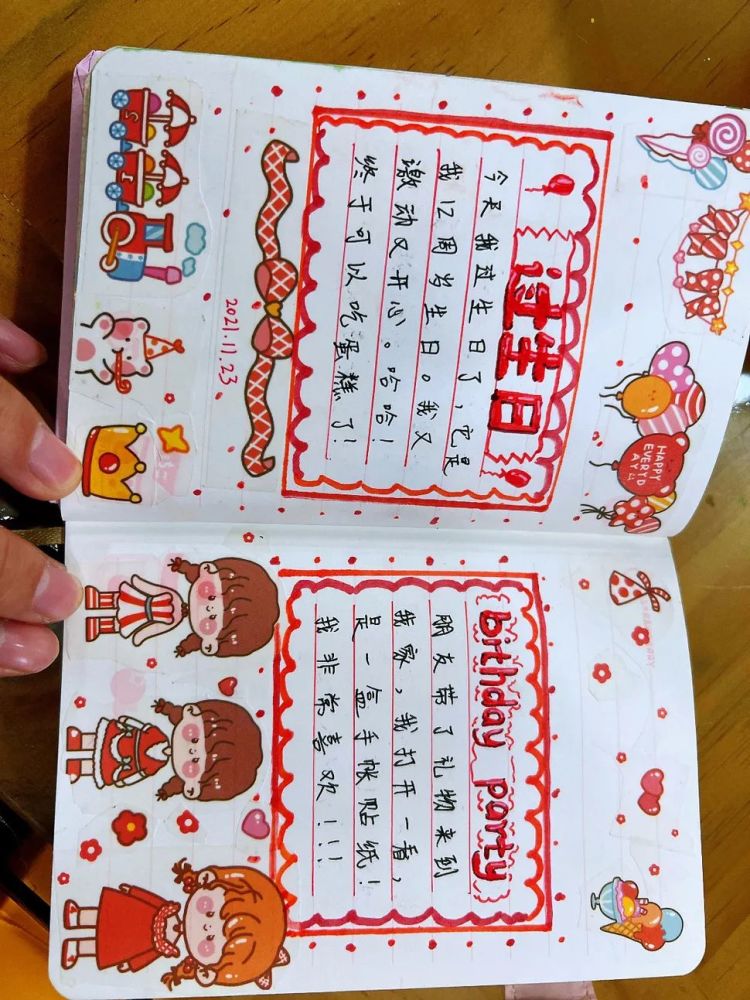 HAPPY
EVERYD
AY
过生日
今天我过生日了，它是
我12周岁生日。我又
激动又开心。哈哈！
终于可以吃蛋糕了！
2021.11.23
birthday party
朋友带了礼物来到
我家，我打开一看，
是一盒手帐贴纸！
我非常喜欢！！！